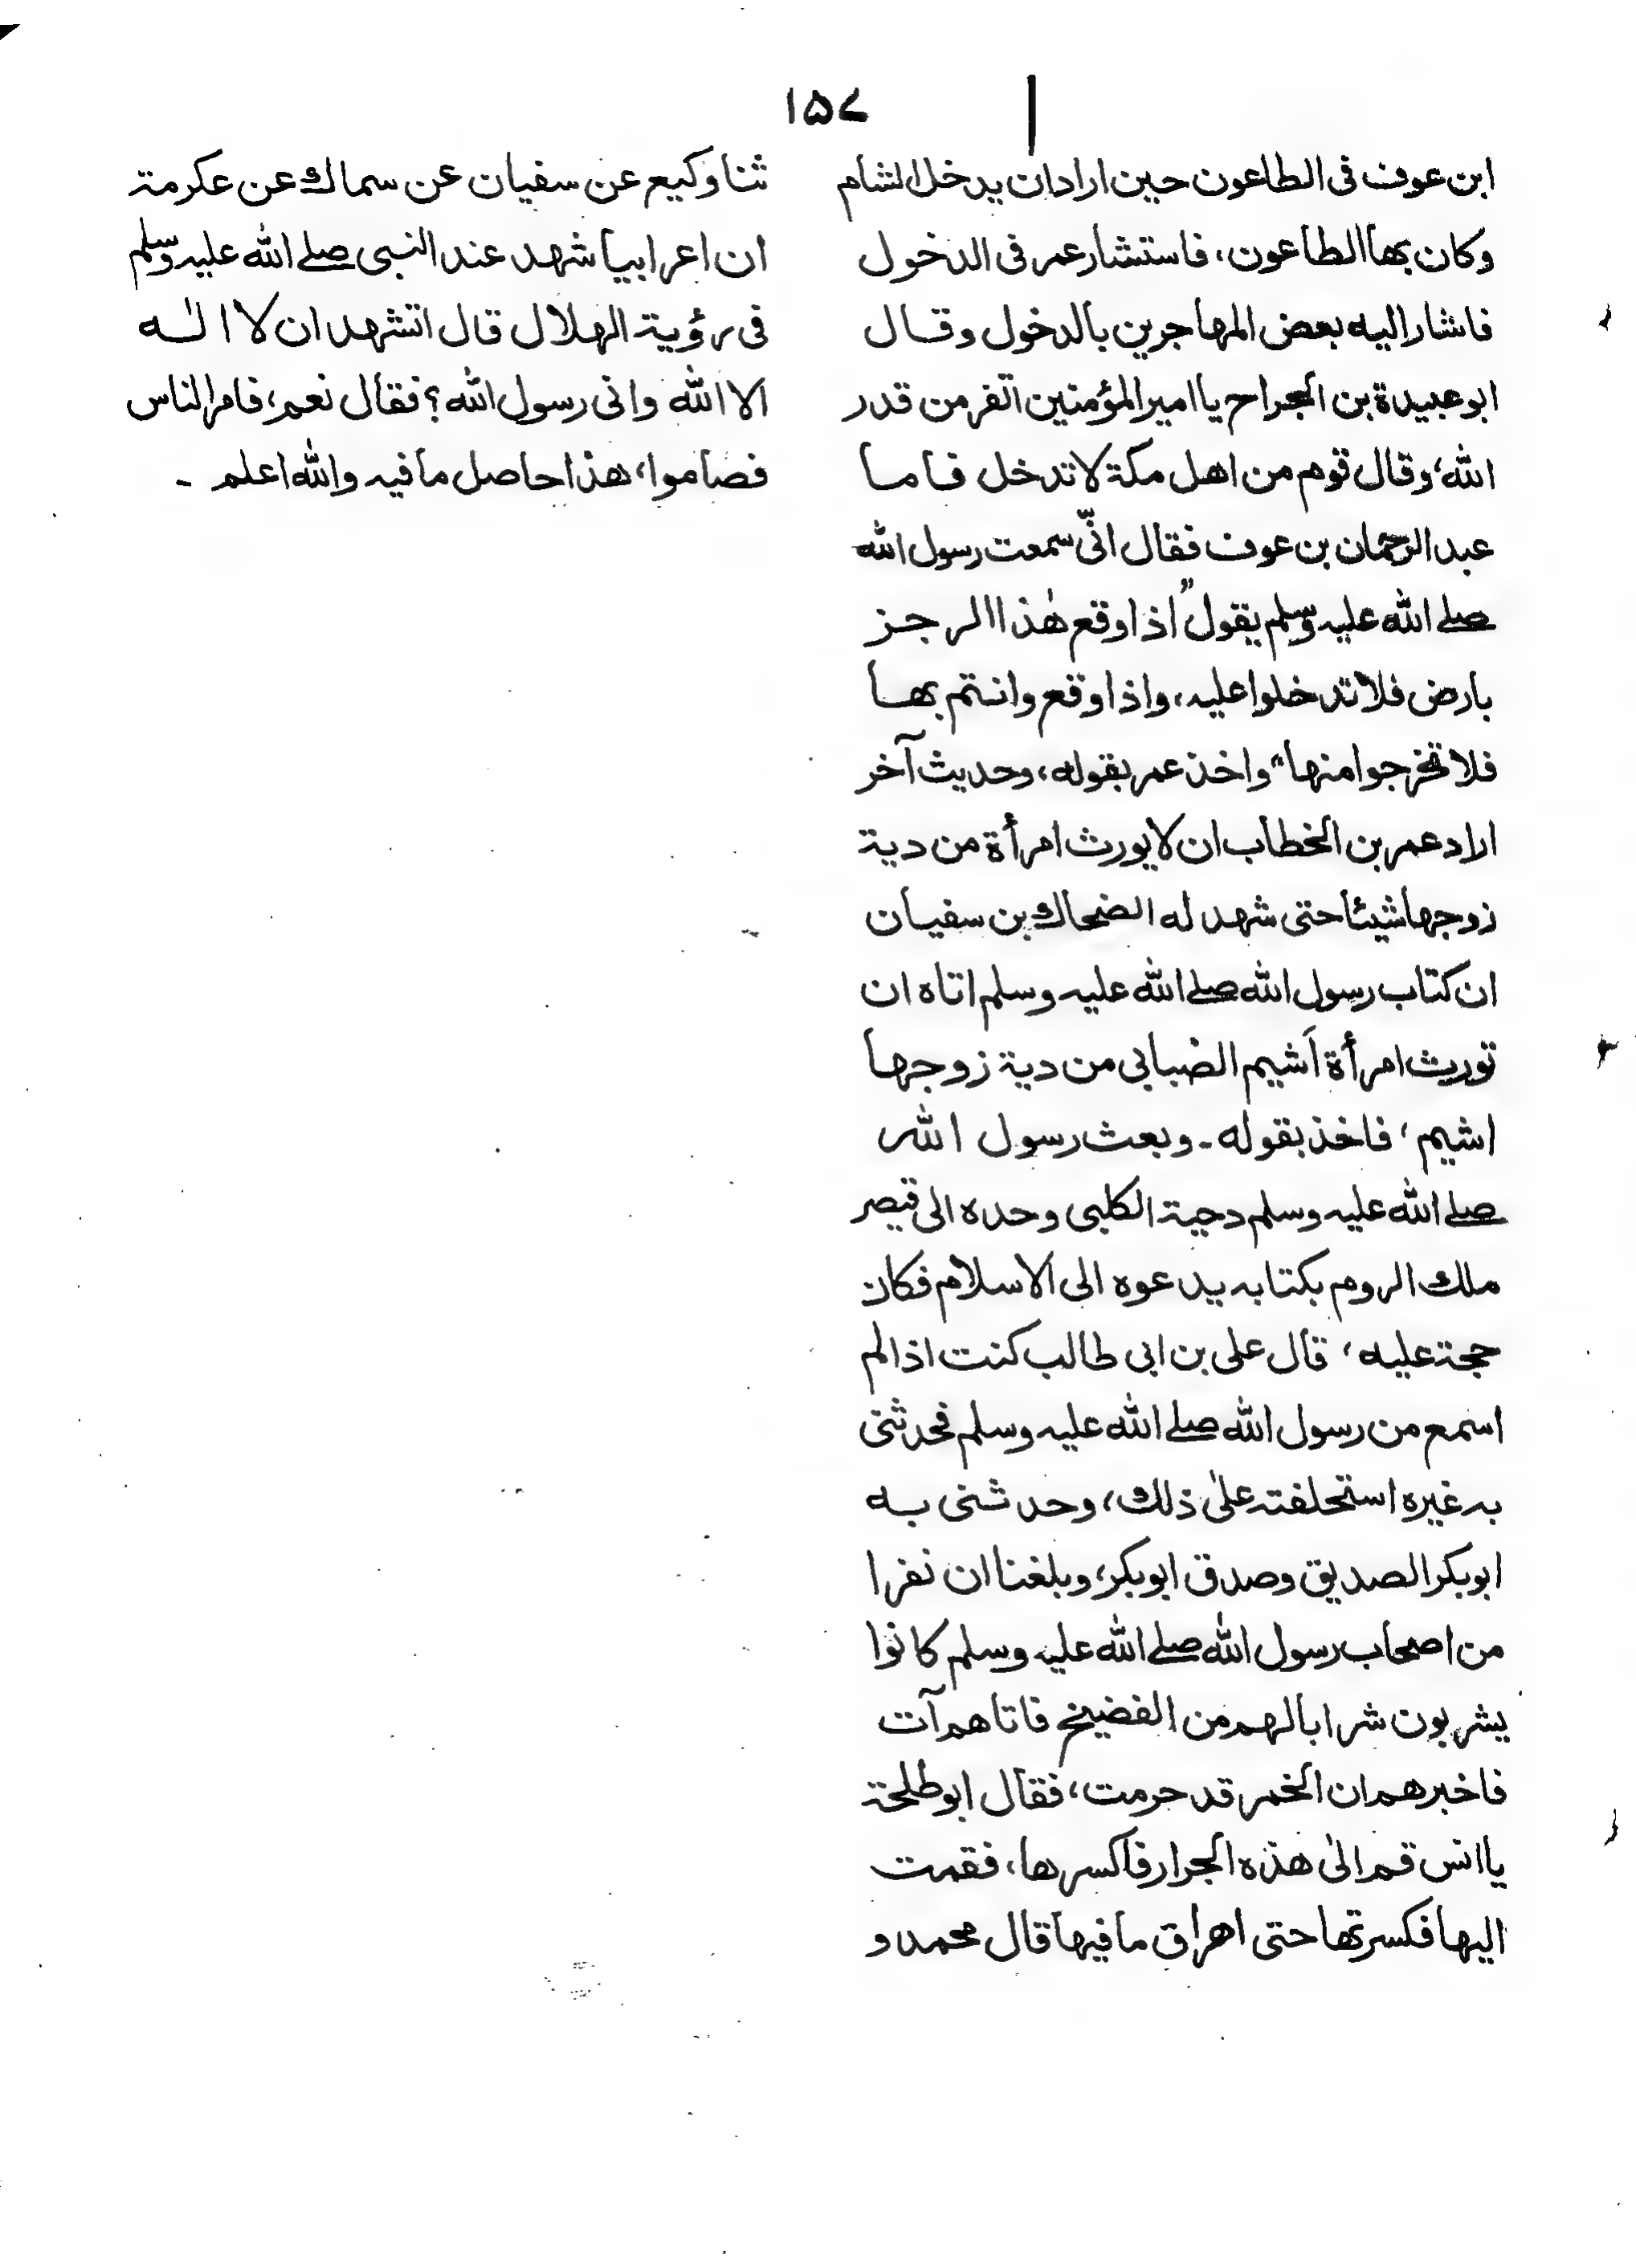 ۱۵۷
ابن عوف فی الطاعون حین اراد ان یدخل الشام
وکان بھا الطاعون، فاستشار عمر فی الدخول
فاشار الیه بعض المهاجرین بالدخول وقال
ابو عبیدة بن الجراح یا امیر المؤمنین اتفر من قدر
الله، وقال قوم من اهل مکة لا تدخل فاما
عبد الرحمان بن عوف فقال انّی سمعت رسول الله
صلے الله علیہ وسلم یقول "اذا وقع هٰذا الرجز
بارض فلا تدخلوا علیہ، واذا وقع وانتم بھا
فلا تخرجوا منها" واخذ عمر بقوله، وحدیث آخر
اراد عمر بن الخطاب ان لا یورث امرأة من دیة
زوجها شیئا حتی شهد له الضحاك بن سفیان
ان کتاب رسول الله صلے الله علیہ وسلم اتاه ان
تورث امرأة اَشیم الضبابی من دیة زوجها
اشیم، فاخذ بقوله۔ وبعث رسول الله
صلے الله علیہ وسلم دحیة الکلبی وحده الی قیصر
ملك الروم بکتابہ یدعوه الی الاسلام فکان
حجة علیه، قال علی بن ابی طالب کنت اذا لم
اسمع من رسول الله صلے الله علیہ وسلم فحدثنی
بہ غیره استحلفتہ علیٰ ذلك، وحدثنی به
ابو بکر الصدیق وصدق ابو بکر، وبلغنا ان نفرا
من اصحاب رسول الله صلے الله علیہ وسلم کانوا
یشربون شرابا لهم من الفضیخ فاتاهم آت
فاخبرهم ان الخمر قد حرمت، فقال ابو طلحة
یا انس قم الیٰ هذه الجرار فاکسرها، فقمت
الیها فکسرتها حتی اهراق ما فیها قال محمد و
ثنا وکیع عن سفیان عن سماك عن عکرمة
ان اعرابیا شهد عند النبی صلے الله علیہ وسلم
فی رؤیة الهلال قال اتشهد ان لا اله
الا الله وانی رسول الله؟ فقال نعم، فامر الناس
فصاموا، هذا حاصل ما فیہ والله اعلم ۔